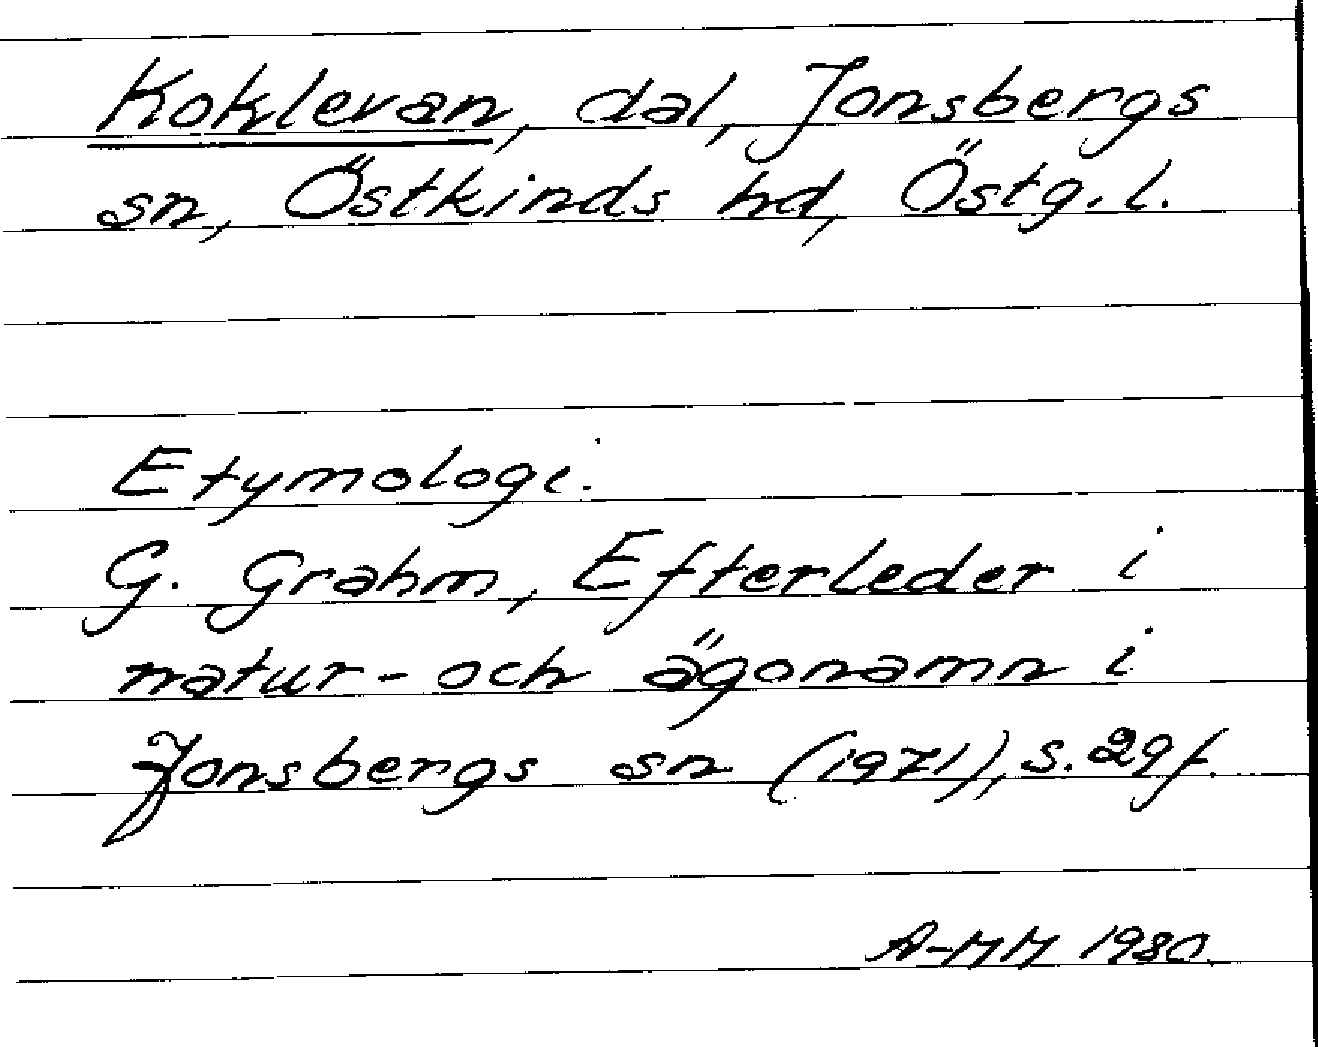 Koklevan, dal, Jonsbergs
sn, Östkinds hd, Östg.l.
Etymologi.
G. Grahm, Efterleder i
natur- och ägonamn i
Jonsbergs sn (1971), s. 29f.
A-MM 1980.